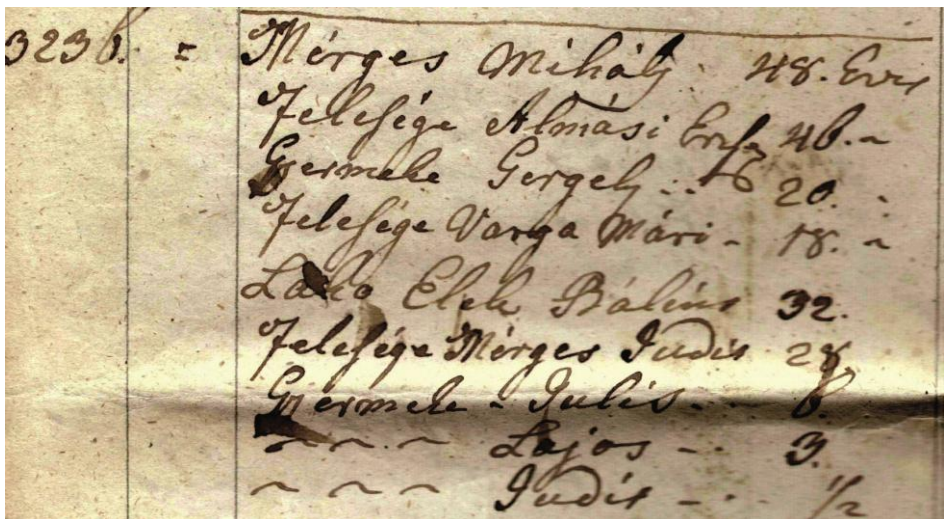 3236. = Mérges Mihálj. 48. Eves
Felesége Almási Erse 46. ~
Gyermeke Gergelj .. 20. .
Felesége Varga Mári - 18. ~
Lako Elek Bálint 32.
Felesége Mérges Judit 28
Gyermeke - Julis .. 6.
~ ~ ~ Lajos - . 3.
~ ~ ~ Judit - . 1/2